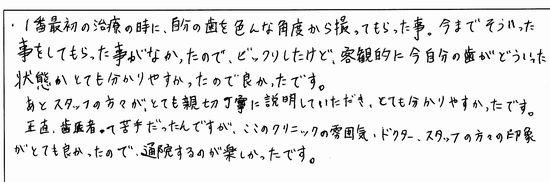 ・1番最初の治療の時に、自分の歯を色んな角度から撮ってもらった事。今までそういった
事をしてもらった事がなかったので、ビックリしたけど、客観的に今自分の歯がどういった
状態かとても分かりやすかったので良かったです。
あとスタッフの方々がとても親切丁寧に説明していただき、とても分かりやすかったです。
正直、歯医者って苦手だったんですが、ここのクリニックの雰囲気・ドクター、スタッフの方々の印象
がとても良かったので、通院するのが楽しかったです。